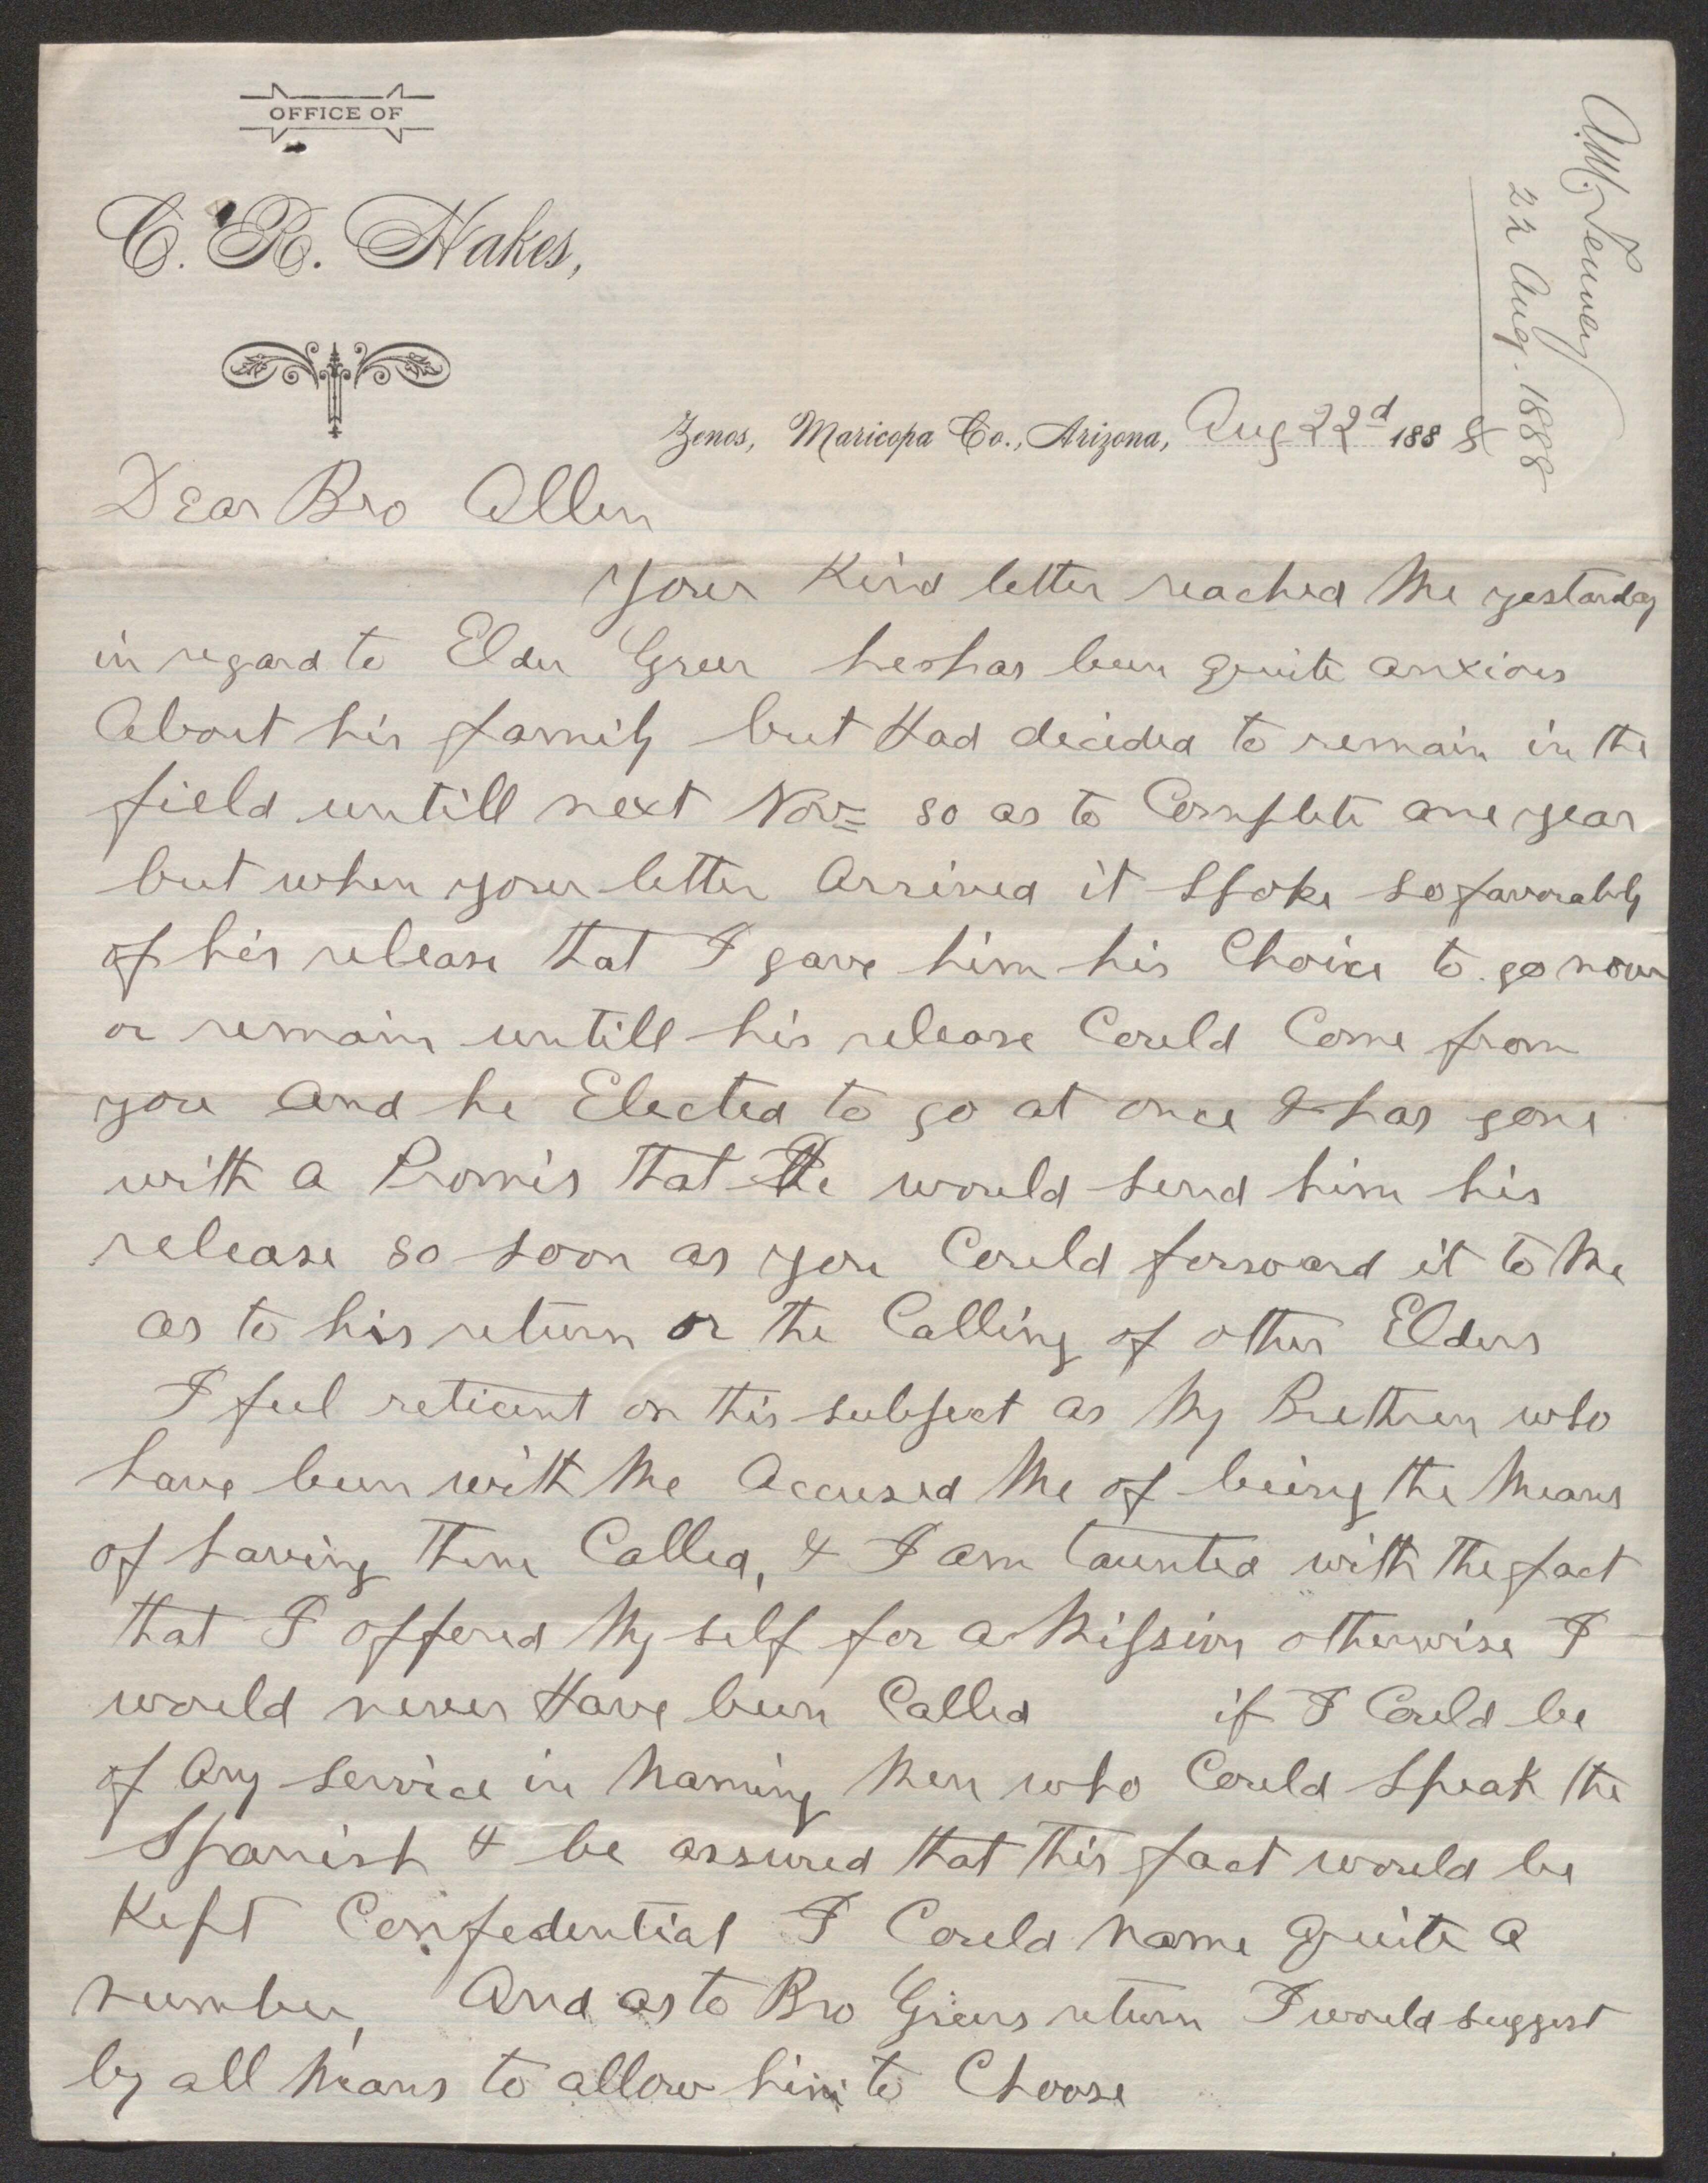 OFFICE OF
C. R. Hakes,
A.M. Tenney
22 Aug. 1888
Zenos, Maricopa Co., Arizona, Aug 22d 1888
Dear Bro Allen
Your Kind letter reached Me yestarday
in regard to Elder Greer he has been quite anxious
About his family but Had decided to remain in the
field untill next Nov= so as to Complete one year
but when your letter Arrived it Spoke so favorably
of his release that I gave him his Choice to go now
or remain untill his release Could Come from
you And he Elected to go at once & has gone
with a Promis that would send him his
release so soon as you Could forward it to Me
as to his return or the Calling of other Elders
I feel reticent on this subject as My Brethren who
have been with Me Accused Me of being the Means
of having them Called, & I am taunted with the fact
that I offered My self for a Mission otherwise I
would never Have been Called if I Could be
of Any service in Naming Men who Could Speak the
Spanish & be assured that this fact would be
Kept Confedential I Could Name quite a
Number, And as to Bro Greers return I would suggest
by all Means to allow him to Choose